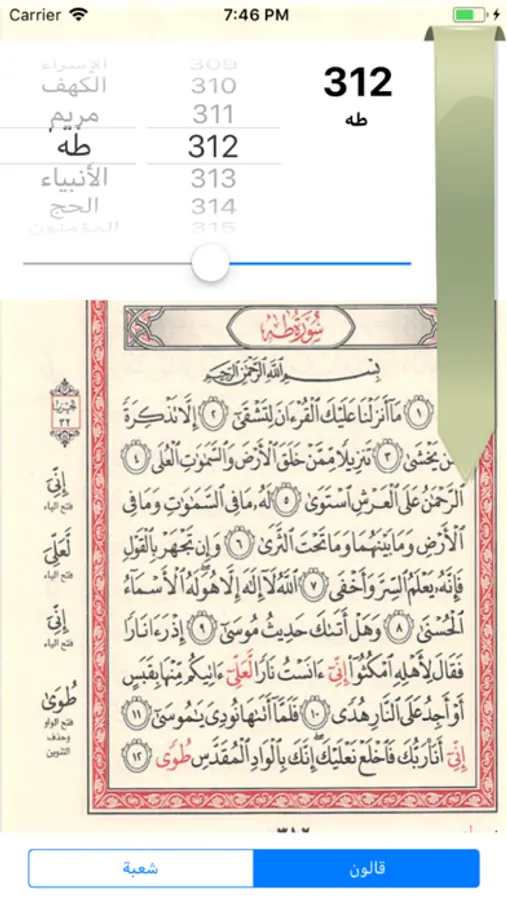 Carrier 7:46 PM
الإسراء 309
الكهف 310
مريم 311
طه 312
الأنبياء 313
الحج 314
المؤمنون 315
312
طه
سُورَةُ طه
بِسْمِ اللَّهِ الرَّحْمَٰنِ الرَّحِيمِ
١ مَا أَنزَلْنَا عَلَيْكَ الْقُرْءَانَ لِتَشْقَىٰ ٢ إِلَّا تَذْكِرَةً
يَخْشَىٰ ٣ تَنزِيلًا مِّمَّنْ خَلَقَ الْأَرْضَ وَالسَّمَٰوَٰتِ الْعُلَى ٤
الرَّحْمَٰنُ عَلَى الْعَرْشِ اسْتَوَىٰ ٥ لَهُ مَا فِي السَّمَٰوَٰتِ وَمَا فِي
الْأَرْضِ وَمَا بَيْنَهُمَا وَمَا تَحْتَ الثَّرَىٰ ٦ وَإِن تَجْهَرْ بِالْقَوْلِ
فَإِنَّهُ يَعْلَمُ السِّرَّ وَأَخْفَى ٧ اللَّهُ لَا إِلَٰهَ إِلَّا هُوَ لَهُ الْأَسْمَاءُ
الْحُسْنَىٰ ٨ وَهَلْ أَتَىٰكَ حَدِيثُ مُوسَىٰ ٩ إِذْ رَءَا نَارًا
فَقَالَ لِأَهْلِهِ امْكُثُوا إِنِّيَ ءَانَسْتُ نَارًا لَّعَلِّيَ ءَاتِيكُم مِّنْهَا بِقَبَسٍ
أَوْ أَجِدُ عَلَى النَّارِ هُدًى ١٠ فَلَمَّا أَتَىٰهَا نُودِيَ يَٰمُوسَىٰ ١١
إِنِّيَ أَنَا رَبُّكَ فَاخْلَعْ نَعْلَيْكَ إِنَّكَ بِالْوَادِ الْمُقَدَّسِ طُوَىٰ ١٢
٣٢
إِنِّيَ
فتح الياء
لَّعَلِّيَ
فتح الياء
إِنِّيَ
فتح الياء
طُوَىٰ
فتح الواو
وحذف
التنوين
٣١٢
قالون
شعبة